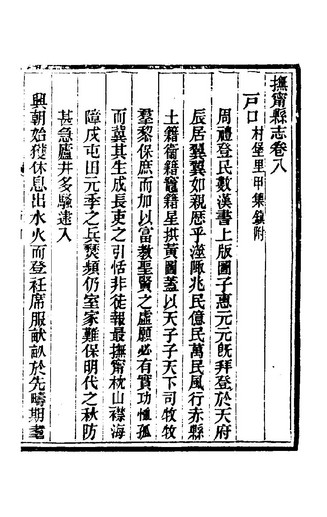 撫甯縣志卷八
戸口 村堡里甲集鎮附
周禮登民數漢書上版圖子惠元元旣拜登於天府
辰居翼翼如親歴乎涇陬兆民億民萬民風行赤縣
土籍衞籍竈籍星拱黃圖蓋以天子子天下司牧牧
羣黎保庶而加以富教聖賢之虛願必有實功惟孤
而冀其生成長吏之引恬非徒報最撫甯枕山襟海
障戍屯田元季之兵燹頻仍室家難保明代之秋防
甚急廬井多騷逮入
興朝始獲休息出水火而登衽席服畎畝於先疇期耄